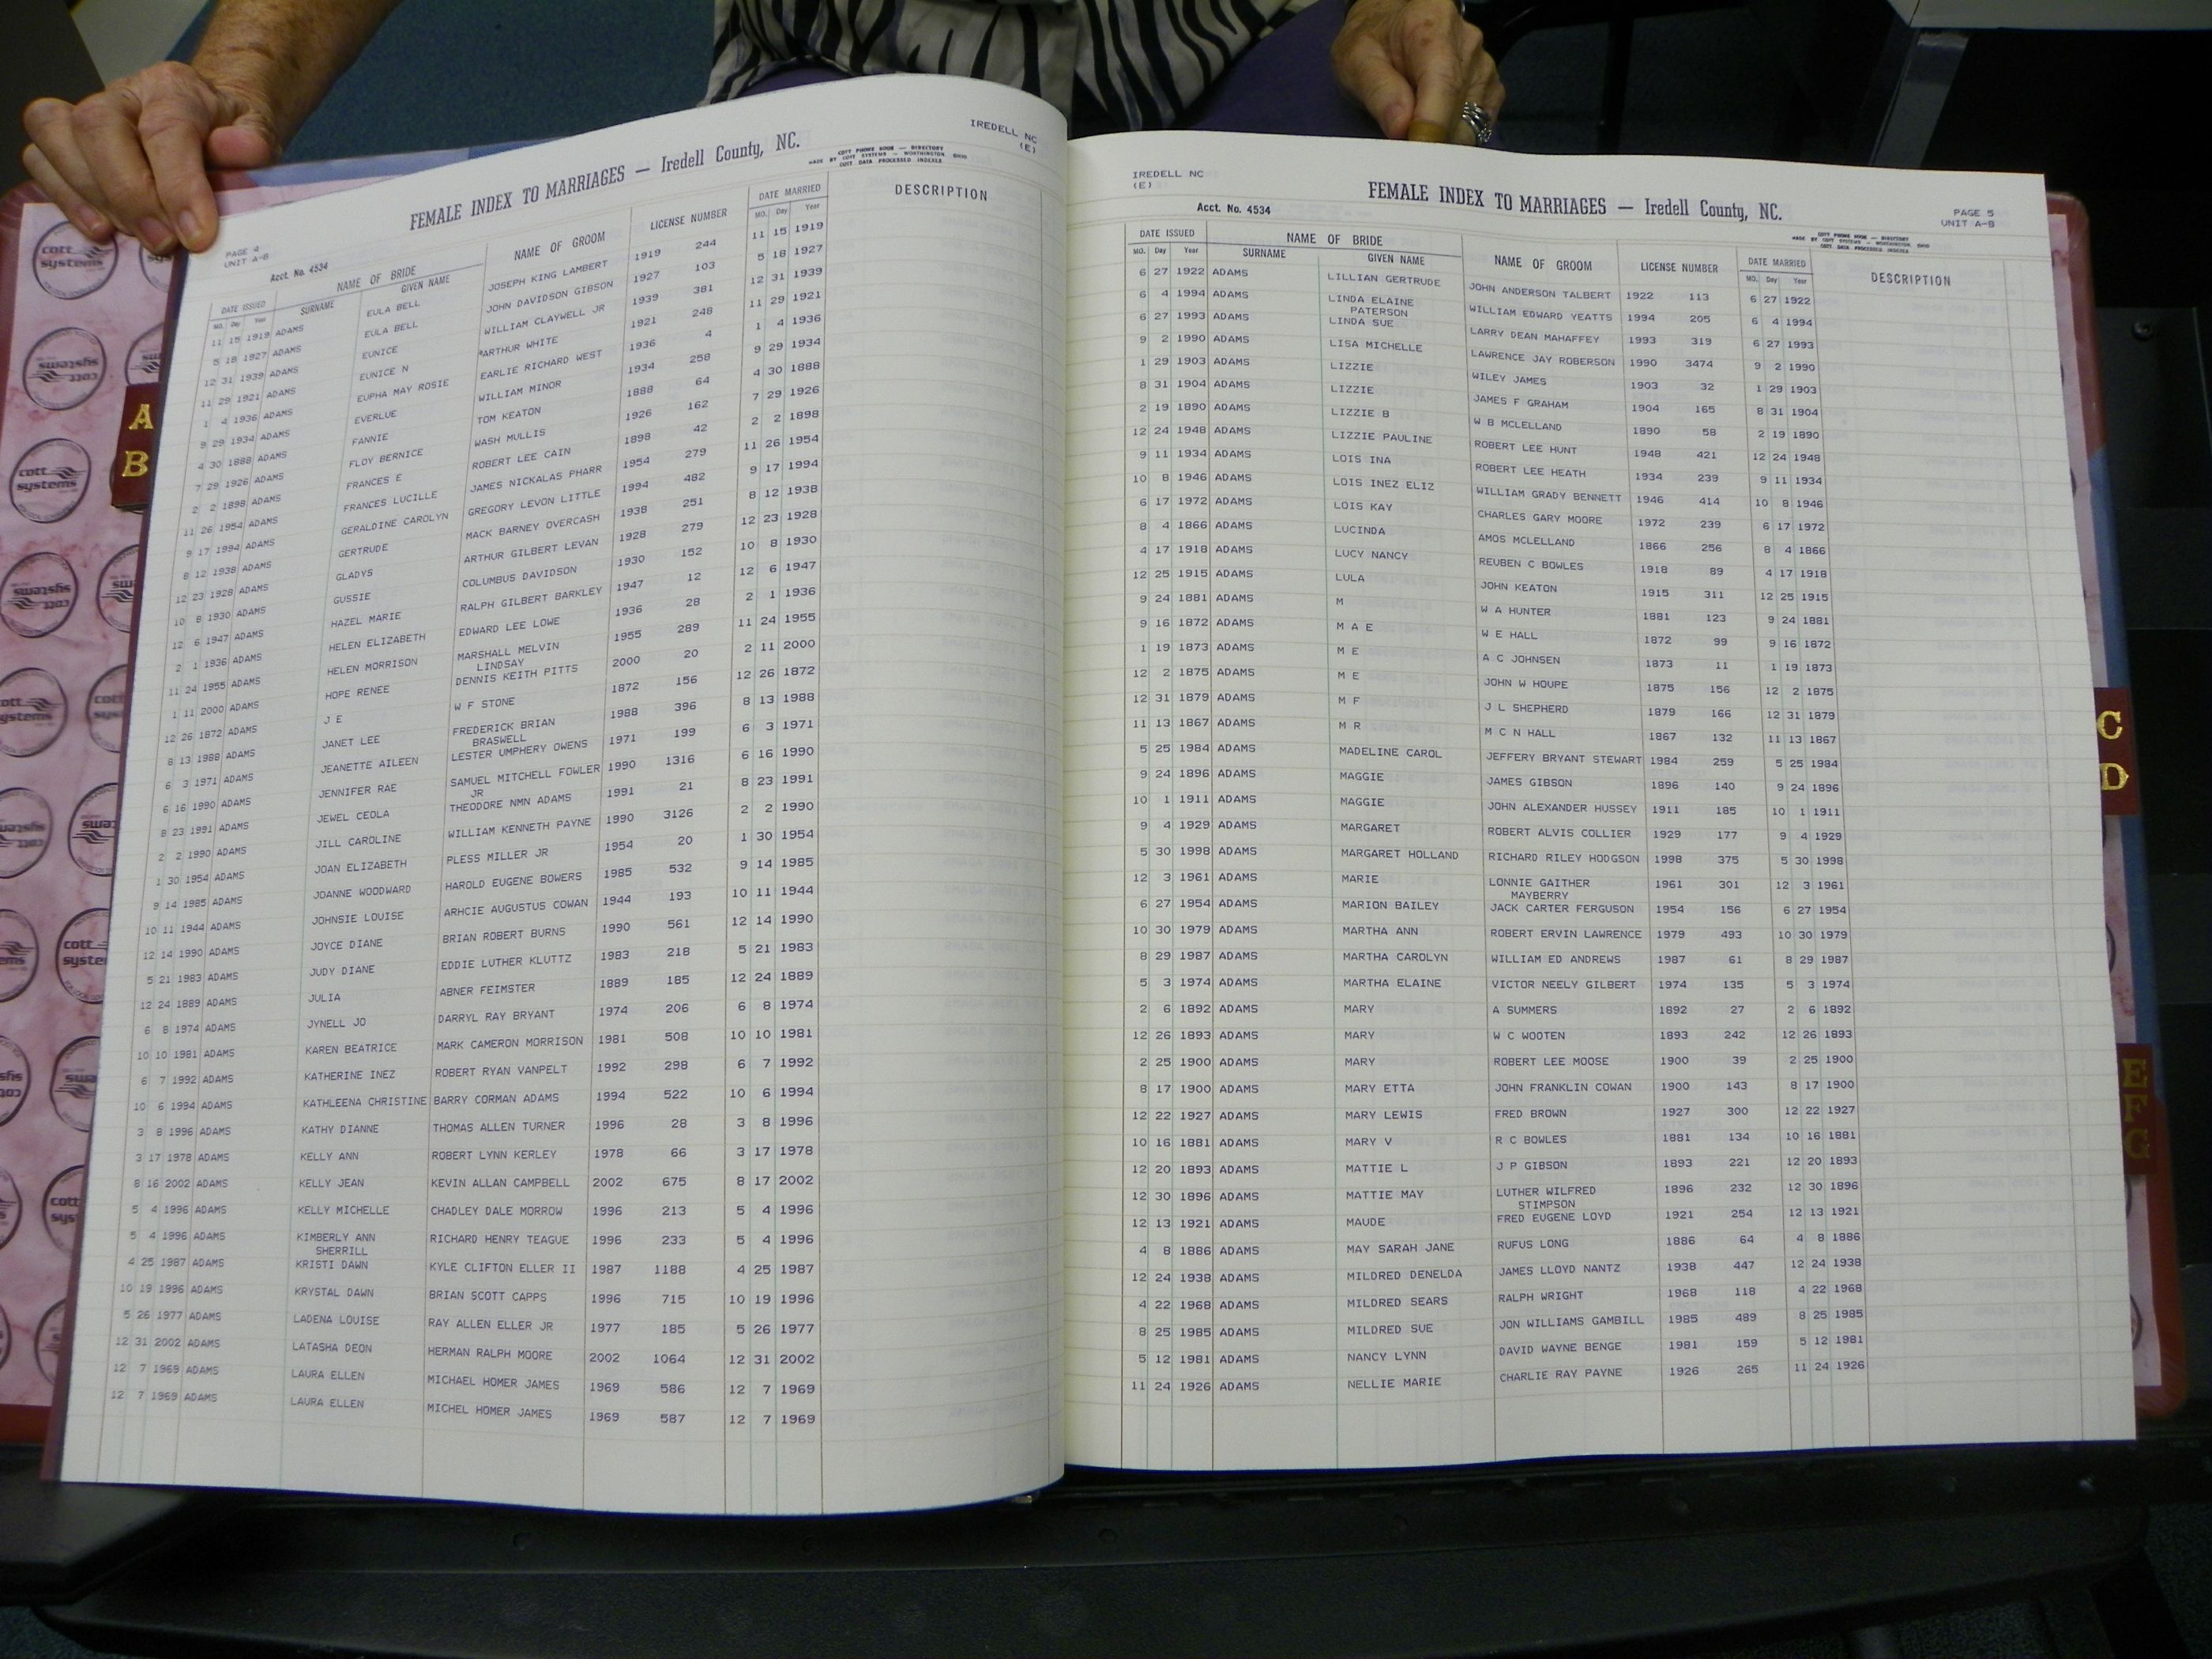 IREDELL NC
(E)
FEMALE INDEX TO MARRIAGES — Iredell County, NC.
COTT PHONE BOOK — DIRECTORY
MADE BY COTT SYSTEMS — WORTHINGTON, OHIO
COTT DATA PROCESSED INDEXES
PAGE 4
UNIT A-B
Acct. No. 4534
DATE ISSUED NAME OF BRIDE NAME OF GROOM LICENSE NUMBER DATE MARRIED DESCRIPTION
MO. Day Year SURNAME GIVEN NAME MO. Day Year
11 15 1919 ADAMS EULA BELL JOSEPH KING LAMBERT 1919 244 11 15 1919
5 18 1927 ADAMS EULA BELL JOHN DAVIDSON GIBSON 1927 103 5 18 1927
12 31 1939 ADAMS EUNICE WILLIAM CLAYWELL JR 1939 381 12 31 1939
11 29 1921 ADAMS EUNICE N *ARTHUR WHITE 1921 248 11 29 1921
1 4 1936 ADAMS EUPHA MAY ROSIE EARLIE RICHARD WEST 1936 4 1 4 1936
9 29 1934 ADAMS EVERLUE WILLIAM MINOR 1934 258 9 29 1934
4 30 1888 ADAMS FANNIE TOM KEATON 1888 64 4 30 1888
7 29 1926 ADAMS FLOY BERNICE WASH MULLIS 1926 162 7 29 1926
2 2 1898 ADAMS FRANCES E ROBERT LEE CAIN 1898 42 2 2 1898
11 26 1954 ADAMS FRANCES LUCILLE JAMES NICKALAS PHARR 1954 279 11 26 1954
9 17 1994 ADAMS GERALDINE CAROLYN GREGORY LEVON LITTLE 1994 482 9 17 1994
8 12 1938 ADAMS GERTRUDE MACK BARNEY OVERCASH 1938 251 8 12 1938
12 23 1928 ADAMS GLADYS ARTHUR GILBERT LEVAN 1928 279 12 23 1928
10 8 1930 ADAMS GUSSIE COLUMBUS DAVIDSON 1930 152 10 8 1930
12 6 1947 ADAMS HAZEL MARIE RALPH GILBERT BARKLEY 1947 12 12 6 1947
2 1 1936 ADAMS HELEN ELIZABETH EDWARD LEE LOWE 1936 28 2 1 1936
11 24 1955 ADAMS HELEN MORRISON MARSHALL MELVIN 1955 289 11 24 1955
LINDSAY
1 11 2000 ADAMS HOPE RENEE DENNIS KEITH PITTS 2000 20 2 11 2000
12 26 1872 ADAMS J E W F STONE 1872 156 12 26 1872
8 13 1988 ADAMS JANET LEE FREDERICK BRIAN 1988 396 8 13 1988
BRASWELL
6 3 1971 ADAMS JEANETTE AILEEN LESTER UMPHERY OWENS 1971 199 6 3 1971
6 16 1990 ADAMS JENNIFER RAE SAMUEL MITCHELL FOWLER 1990 1316 6 16 1990
JR
8 23 1991 ADAMS JEWEL CEOLA THEODORE NMN ADAMS 1991 21 8 23 1991
2 2 1990 ADAMS JILL CAROLINE WILLIAM KENNETH PAYNE 1990 3126 2 2 1990
1 30 1954 ADAMS JOAN ELIZABETH PLESS MILLER JR 1954 20 1 30 1954
9 14 1985 ADAMS JOANNE WOODWARD HAROLD EUGENE BOWERS 1985 532 9 14 1985
10 11 1944 ADAMS JOHNSIE LOUISE ARHCIE AUGUSTUS COWAN 1944 193 10 11 1944
12 14 1990 ADAMS JOYCE DIANE BRIAN ROBERT BURNS 1990 561 12 14 1990
5 21 1983 ADAMS JUDY DIANE EDDIE LUTHER KLUTTZ 1983 218 5 21 1983
12 24 1889 ADAMS JULIA ABNER FEIMSTER 1889 185 12 24 1889
6 8 1974 ADAMS JYNELL JO DARRYL RAY BRYANT 1974 206 6 8 1974
10 10 1981 ADAMS KAREN BEATRICE MARK CAMERON MORRISON 1981 508 10 10 1981
6 7 1992 ADAMS KATHERINE INEZ ROBERT RYAN VANPELT 1992 298 6 7 1992
10 6 1994 ADAMS KATHLEENA CHRISTINE BARRY CORMAN ADAMS 1994 522 10 6 1994
3 8 1996 ADAMS KATHY DIANNE THOMAS ALLEN TURNER 1996 28 3 8 1996
3 17 1978 ADAMS KELLY ANN ROBERT LYNN KERLEY 1978 66 3 17 1978
8 16 2002 ADAMS KELLY JEAN KEVIN ALLAN CAMPBELL 2002 675 8 17 2002
5 4 1996 ADAMS KELLY MICHELLE CHADLEY DALE MORROW 1996 213 5 4 1996
5 4 1996 ADAMS KIMBERLY ANN RICHARD HENRY TEAGUE 1996 233 5 4 1996
SHERRILL
4 25 1987 ADAMS KRISTI DAWN KYLE CLIFTON ELLER II 1987 1188 4 25 1987
10 19 1996 ADAMS KRYSTAL DAWN BRIAN SCOTT CAPPS 1996 715 10 19 1996
5 26 1977 ADAMS LADENA LOUISE RAY ALLEN ELLER JR 1977 185 5 26 1977
12 31 2002 ADAMS LATASHA DEON HERMAN RALPH MOORE 2002 1064 12 31 2002
12 7 1969 ADAMS LAURA ELLEN MICHAEL HOMER JAMES 1969 586 12 7 1969
12 7 1969 ADAMS LAURA ELLEN MICHEL HOMER JAMES 1969 587 12 7 1969
IREDELL NC
(E)
FEMALE INDEX TO MARRIAGES — Iredell County, NC.
Acct. No. 4534
PAGE 5
UNIT A-B
COTT PHONE BOOK — DIRECTORY
MADE BY COTT SYSTEMS — WORTHINGTON, OHIO
COTT DATA PROCESSED INDEXES
DATE ISSUED NAME OF BRIDE NAME OF GROOM LICENSE NUMBER DATE MARRIED DESCRIPTION
MO. Day Year SURNAME GIVEN NAME MO. Day Year
6 27 1922 ADAMS LILLIAN GERTRUDE JOHN ANDERSON TALBERT 1922 113 6 27 1922
6 4 1994 ADAMS LINDA ELAINE WILLIAM EDWARD YEATTS 1994 205 6 4 1994
PATERSON
6 27 1993 ADAMS LINDA SUE LARRY DEAN MAHAFFEY 1993 319 6 27 1993
9 2 1990 ADAMS LISA MICHELLE LAWRENCE JAY ROBERSON 1990 3474 9 2 1990
1 29 1903 ADAMS LIZZIE WILEY JAMES 1903 32 1 29 1903
8 31 1904 ADAMS LIZZIE JAMES F GRAHAM 1904 165 8 31 1904
2 19 1890 ADAMS LIZZIE B W B MCLELLAND 1890 58 2 19 1890
12 24 1948 ADAMS LIZZIE PAULINE ROBERT LEE HUNT 1948 421 12 24 1948
9 11 1934 ADAMS LOIS INA ROBERT LEE HEATH 1934 239 9 11 1934
10 8 1946 ADAMS LOIS INEZ ELIZ WILLIAM GRADY BENNETT 1946 414 10 8 1946
6 17 1972 ADAMS LOIS KAY CHARLES GARY MOORE 1972 239 6 17 1972
8 4 1866 ADAMS LUCINDA AMOS MCLELLAND 1866 256 8 4 1866
4 17 1918 ADAMS LUCY NANCY REUBEN C BOWLES 1918 89 4 17 1918
12 25 1915 ADAMS LULA JOHN KEATON 1915 311 12 25 1915
9 24 1881 ADAMS M W A HUNTER 1881 123 9 24 1881
9 16 1872 ADAMS M A E W E HALL 1872 99 9 16 1872
1 19 1873 ADAMS M E A C JOHNSEN 1873 11 1 19 1873
12 2 1875 ADAMS M E JOHN W HOUPE 1875 156 12 2 1875
12 31 1879 ADAMS M F J L SHEPHERD 1879 166 12 31 1879
11 13 1867 ADAMS M R M C N HALL 1867 132 11 13 1867
5 25 1984 ADAMS MADELINE CAROL JEFFERY BRYANT STEWART 1984 259 5 25 1984
9 24 1896 ADAMS MAGGIE JAMES GIBSON 1896 140 9 24 1896
10 1 1911 ADAMS MAGGIE JOHN ALEXANDER HUSSEY 1911 185 10 1 1911
9 4 1929 ADAMS MARGARET ROBERT ALVIS COLLIER 1929 177 9 4 1929
5 30 1998 ADAMS MARGARET HOLLAND RICHARD RILEY HODGSON 1998 375 5 30 1998
12 3 1961 ADAMS MARIE LONNIE GAITHER 1961 301 12 3 1961
MAYBERRY
6 27 1954 ADAMS MARION BAILEY JACK CARTER FERGUSON 1954 156 6 27 1954
10 30 1979 ADAMS MARTHA ANN ROBERT ERVIN LAWRENCE 1979 493 10 30 1979
8 29 1987 ADAMS MARTHA CAROLYN WILLIAM ED ANDREWS 1987 61 8 29 1987
5 3 1974 ADAMS MARTHA ELAINE VICTOR NEELY GILBERT 1974 135 5 3 1974
2 6 1892 ADAMS MARY A SUMMERS 1892 27 2 6 1892
12 26 1893 ADAMS MARY W C WOOTEN 1893 242 12 26 1893
2 25 1900 ADAMS MARY ROBERT LEE MOOSE 1900 39 2 25 1900
8 17 1900 ADAMS MARY ETTA JOHN FRANKLIN COWAN 1900 143 8 17 1900
12 22 1927 ADAMS MARY LEWIS FRED BROWN 1927 300 12 22 1927
10 16 1881 ADAMS MARY V R C BOWLES 1881 134 10 16 1881
12 20 1893 ADAMS MATTIE L J P GIBSON 1893 221 12 20 1893
12 30 1896 ADAMS MATTIE MAY LUTHER WILFRED 1896 232 12 30 1896
STIMPSON
12 13 1921 ADAMS MAUDE FRED EUGENE LOYD 1921 254 12 13 1921
4 8 1886 ADAMS MAY SARAH JANE RUFUS LONG 1886 64 4 8 1886
12 24 1938 ADAMS MILDRED DENELDA JAMES LLOYD NANTZ 1938 447 12 24 1938
4 22 1968 ADAMS MILDRED SEARS RALPH WRIGHT 1968 118 4 22 1968
8 25 1985 ADAMS MILDRED SUE JON WILLIAMS GAMBILL 1985 489 8 25 1985
5 12 1981 ADAMS NANCY LYNN DAVID WAYNE BENGE 1981 159 5 12 1981
11 24 1926 ADAMS NELLIE MARIE CHARLIE RAY PAYNE 1926 265 11 24 1926
A
B
C
D
E
F
G
cott
systems